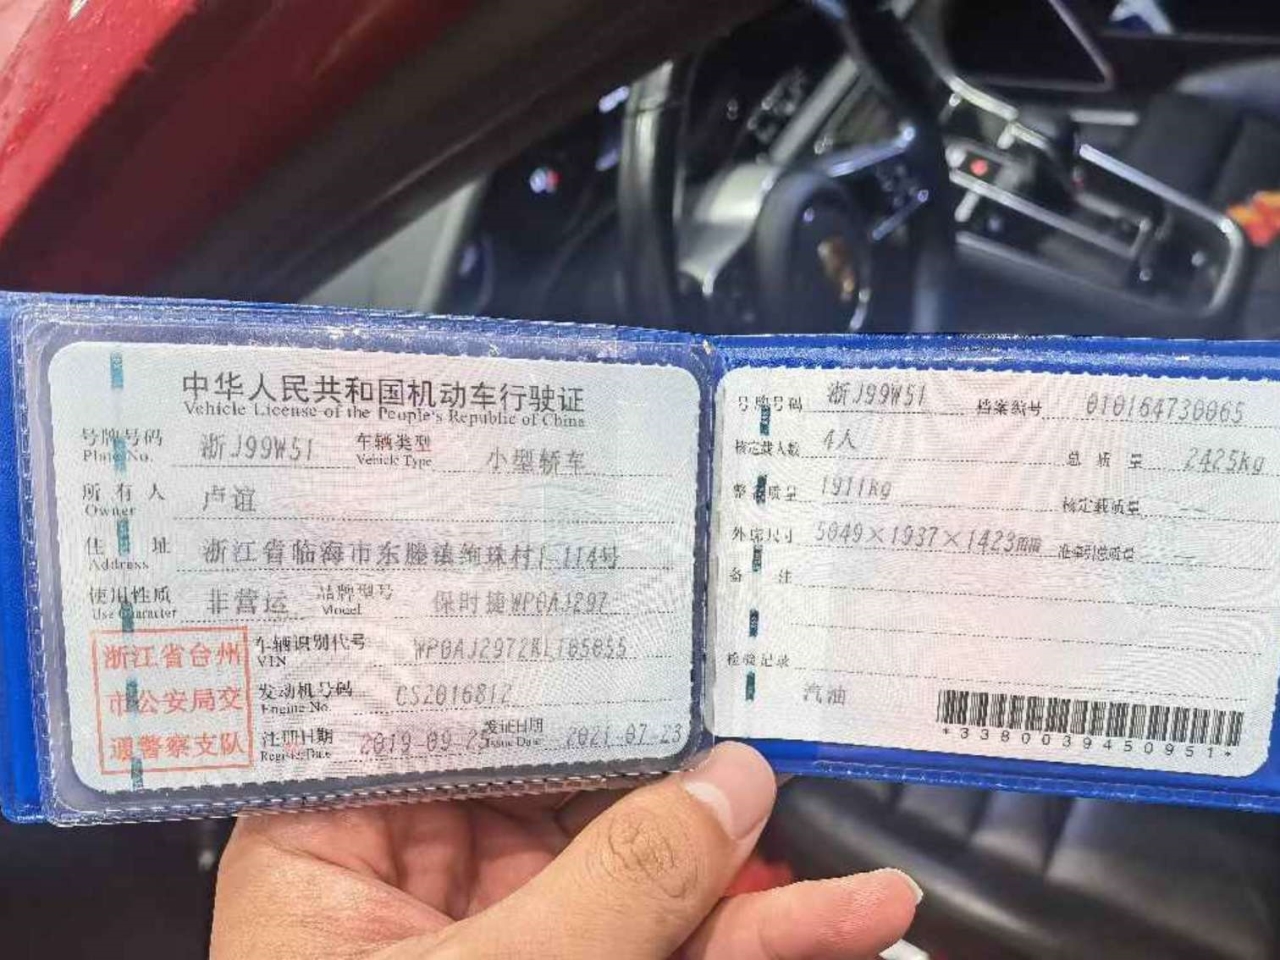 中华人民共和国机动车行驶证
Vehicle License of the People's Republic of China
号牌号码 浙J99W51 车辆类型 小型轿车
Plate No. Vehicle Type
所有人 卢谊
Owner
住址 浙江省临海市东塍镇绚珠村1-114号
Address
使用性质 非营运 品牌型号 保时捷WP0AJ297
Use Character Model
浙江省台州
市公安局交
通警察支队
车辆识别代号
VIN
发动机号码 CS2016812
Engine No.
注册日期 发证日期 2021-07-23
Register Date Issue Date
号牌号码 浙J99W51 档案编号 010164730065
核定载人数 4人 总质量 2425kg
整备质量 1911kg 核定载质量 --
外廓尺寸 5049×1937×1423mm 准牵引总质量 --
备注
检验记录
汽油
*3380039450951*